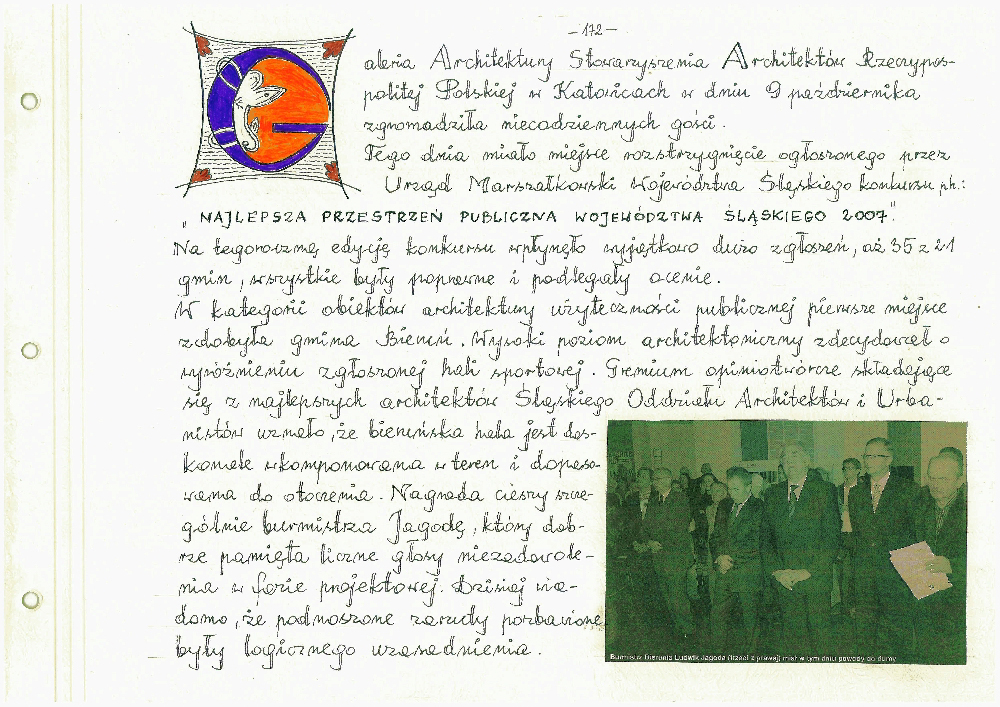 - 172 -
Galeria Architektury Stowarzyszenia Architektów Rzeczypos-
politej Polskiej w Katowicach w dniu 9 października
zgromadziła niecodziennych gości.
Tego dnia miało miejsce rozstrzygnięcie ogłoszonego przez
Urząd Marszałkowski Województwa Śląskiego konkursu ph.:
„NAJLEPSZA PRZESTRZEŃ PUBLICZNA WOJEWÓDZTWA ŚLĄSKIEGO 2007".
Na tegoroczną edycję konkursu wpłynęło wyjątkowo dużo zgłoszeń, aż 35 z 21
gmin, wszystkie były poprawne i podlegały ocenie.
W kategorii obiektów architektury użyteczności publicznej pierwsze miejsce
zdobyła gmina Bieruń. Wysoki poziom architektoniczny zdecydował o
wyróżnieniu zgłoszonej hali sportowej. Gremium opiniotwórcze składające
się z najlepszych architektów Śląskiego Oddziału Architektów i Urba-
nistów uznało, że bieruńska hala jest dos-
konale wkomponowana w teren i dopaso-
wana do otoczenia. Nagroda cieszy szcze-
gólnie burmistrza Jagodę, który dob-
rze pamięta liczne głosy niezadowole-
nia w fazie projektowej. Dzisiaj wia-
domo, że podnoszone zarzuty pozbawione
były logicznego uzasadnienia.
Burmistrz Bierunia Ludwik Jagoda (trzeci z prawej) miał w tym dniu powody do dumy